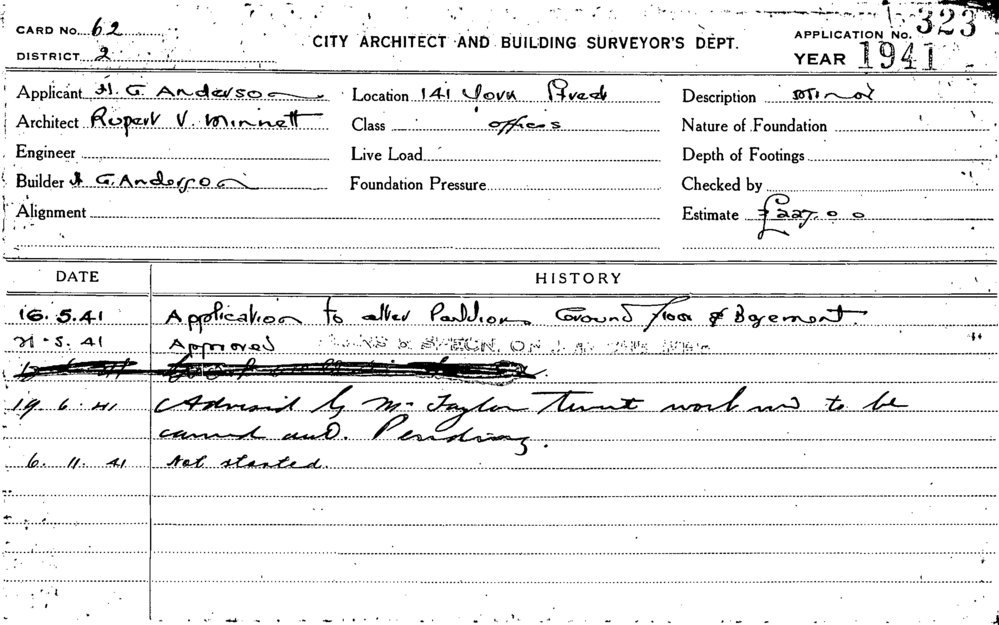 CARD No. 62
DISTRICT 2
CITY ARCHITECT AND BUILDING SURVEYOR'S DEPT.
APPLICATION No. 323
YEAR 1941
Applicant H. G. Anderson Location 141 York Street Description Minor
Architect Rupert V. Minnett Class offices Nature of Foundation
Engineer Live Load Depth of Footings
Builder H. G. Anderson Foundation Pressure Checked by
Alignment Estimate £227.0.0
DATE HISTORY
16.5.41 Application to alter Partitions Ground Floor & Basement.
21.5.41 Approved
19.6.41 Advised by Mr Taylor work not to be
carried out. Pending.
6.11.41 Not started.